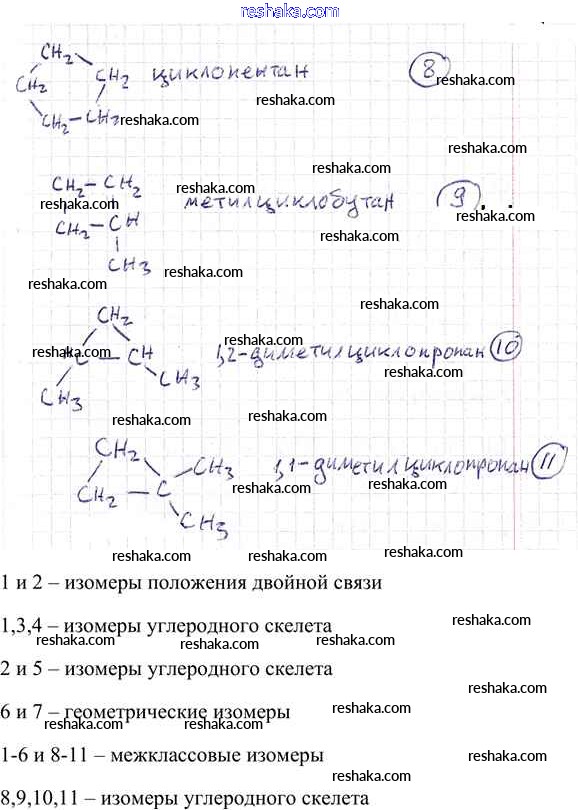 reshaka.com
CH2
CH2 циклопентан 8
reshaka.com
CH2
reshaka.com
CH2 – CH2 reshaka.com
reshaka.com
CH2 – CH2 метилциклобутан 9
reshaka.com
reshaka.com
CH2 – CH
CH3 reshaka.com
reshaka.com
CH2
reshaka.com
reshaka.com
CH 1,2-диметилциклопропан 10
CH3 reshaka.com
CH3
reshaka.com
reshaka.com
CH2 CH3 1,1-диметилциклопропан 11
CH2 – C reshaka.com
reshaka.com
CH3
reshaka.com
reshaka.com
1 и 2 – изомеры положения двойной связи
reshaka.com
1,3,4 – изомеры углеродного скелета
reshaka.com
reshaka.com
2 и 5 – изомеры углеродного скелета
reshaka.com
6 и 7 – геометрические изомеры
reshaka.com
reshaka.com
1-6 и 8-11 – межклассовые изомеры
reshaka.com
reshaka.com
8,9,10,11 – изомеры углеродного скелета